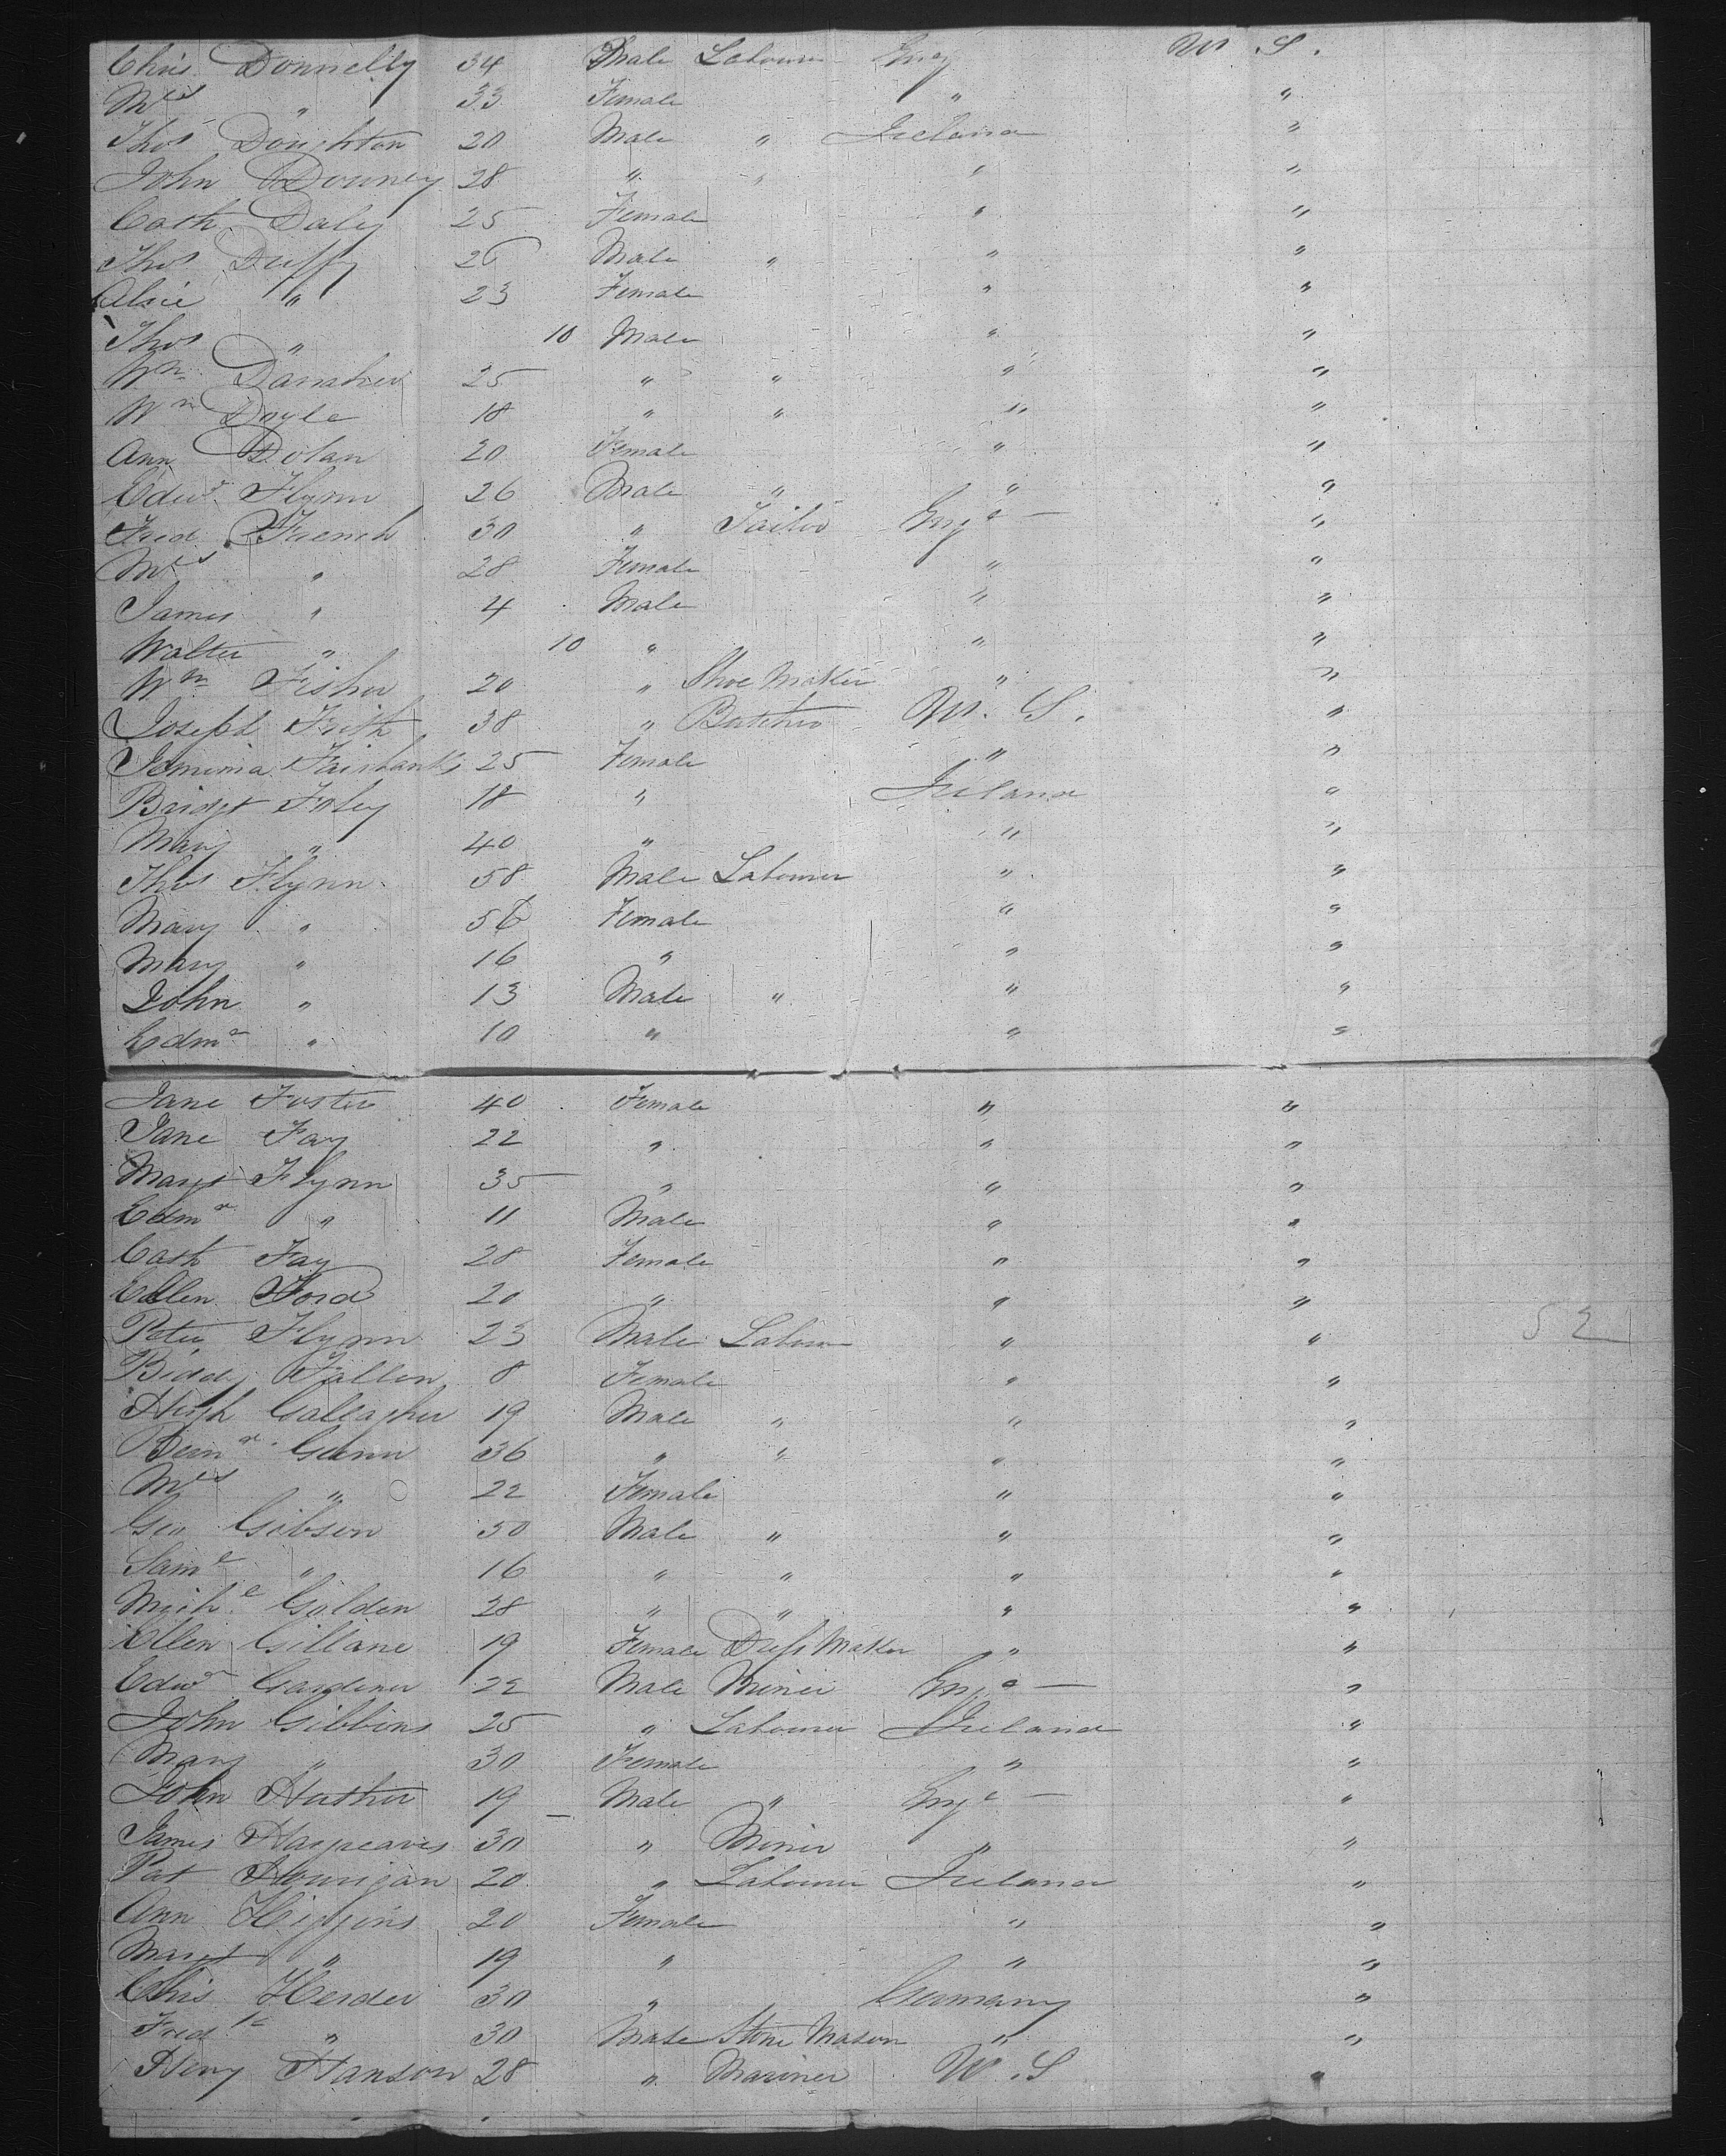 Chris Donnelly 34 Male Labourer Eng U. S.
Mrs " 33 Female " "
Thos Doughton 20 Male " Ireland "
John Downey 28 " " " "
Cath Daley 25 Female " "
Thos Duffy 26 Male " " "
Alsie " 23 Female " "
Thos " 10 Male " "
Wm Danaher 25 " " " "
Wm Doyle 18 " " " "
Ann Dolan 20 Female " "
Edwd Flynn 26 Male " " "
Fred French 30 " Tailor Engd "
Mrs " 28 Female " "
James " 4 Male " "
Walter " 10 " " "
Wm Fisher 20 " Shoe Maker " "
Joseph Frith 38 " Butcher U. S. "
Jemima Fairbanks 25 Female " "
Bridgt Foley 18 " Ireland "
Mary " 40 " " "
Thos Flynn 58 Male Labourer " "
Mary " 56 Female " "
Mary " 16 " " "
John " 13 Male " " "
Edmd " 10 " " "
Jane Foster 40 Female " "
Jane Fay 22 " " "
Margt Flynn 35 " " "
Edmd " 11 Male " "
Cath Fay 28 Female " "
Ellen Ford 20 " " "
Peter Flynn 23 Male Labour " "
52
Biddy Fallon 8 Female " "
Hugh Gallagher 19 Male " " "
Bernd Gunn 36 " " " "
Mrs " 22 Female " "
Geo Gibson 50 Male " " "
Saml " 16 " " " "
Michl Golden 28 " " " "
Ellen Gillane 19 Female Dress Maker " "
Edwd Gardener 22 Male Miner Engd "
John Gibbons 25 " Labourer Ireland "
Mary " 30 Female " "
John Hather 19 Male " Engd "
James Hargreaves 30 " Miner " "
Pat Hourigan 20 " Labourer Ireland "
Ann Higgins 20 Female " "
Margt " 19 " " "
Chris Herder 30 " Germany "
Fredk " 30 Male Stone Mason " "
Henry Hanson 28 " Mariner U. S "